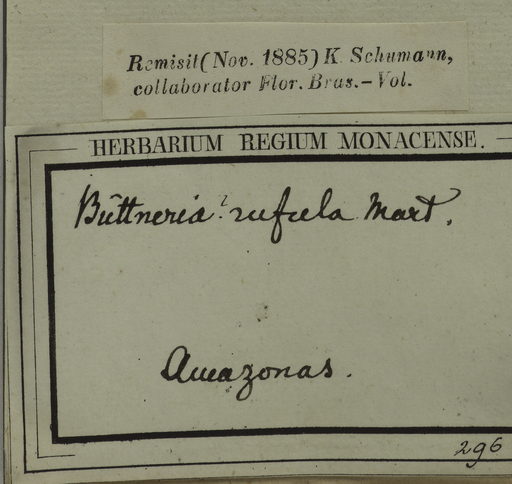 Remisit (Nov. 1885) K. Schumann,
collaborator Flor. Bras. – Vol.
HERBARIUM REGIUM MONACENSE.
Büttneria? rufula Mart.
Amazonas.
296